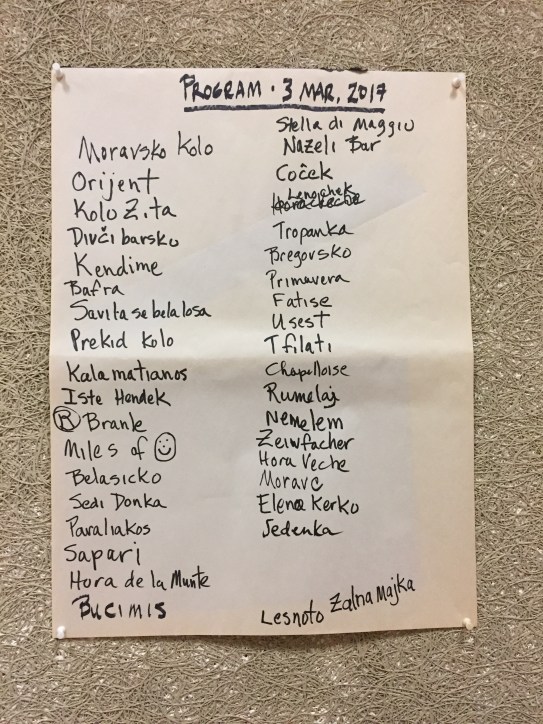 PROGRAM · 3 MAR, 2017
Moravsko Kolo
Orijent
Kolo Z.ita
Divči barsko
Kendime
Bafra
Savila se bela losa
Prekid Kolo
Kalamatianos
Iste Hendek
R Branle
Miles of ☺
Belasicko
Sedi Donka
Paraliakos
Sapari
Hora de la Munte
BUCIMIS
Stella di Maggio
Nazeli Bar
Coček
Lenoichek
Tropanka
Bregovsko
Primavera
Fatise
Usest
Tfilati
Chapelloise
Rumelaj
Nemelem
Zeiwfacher
Hora Veche
Moravc
Elenα Kerko
Jedenka
Lesnoto Zalna Majka